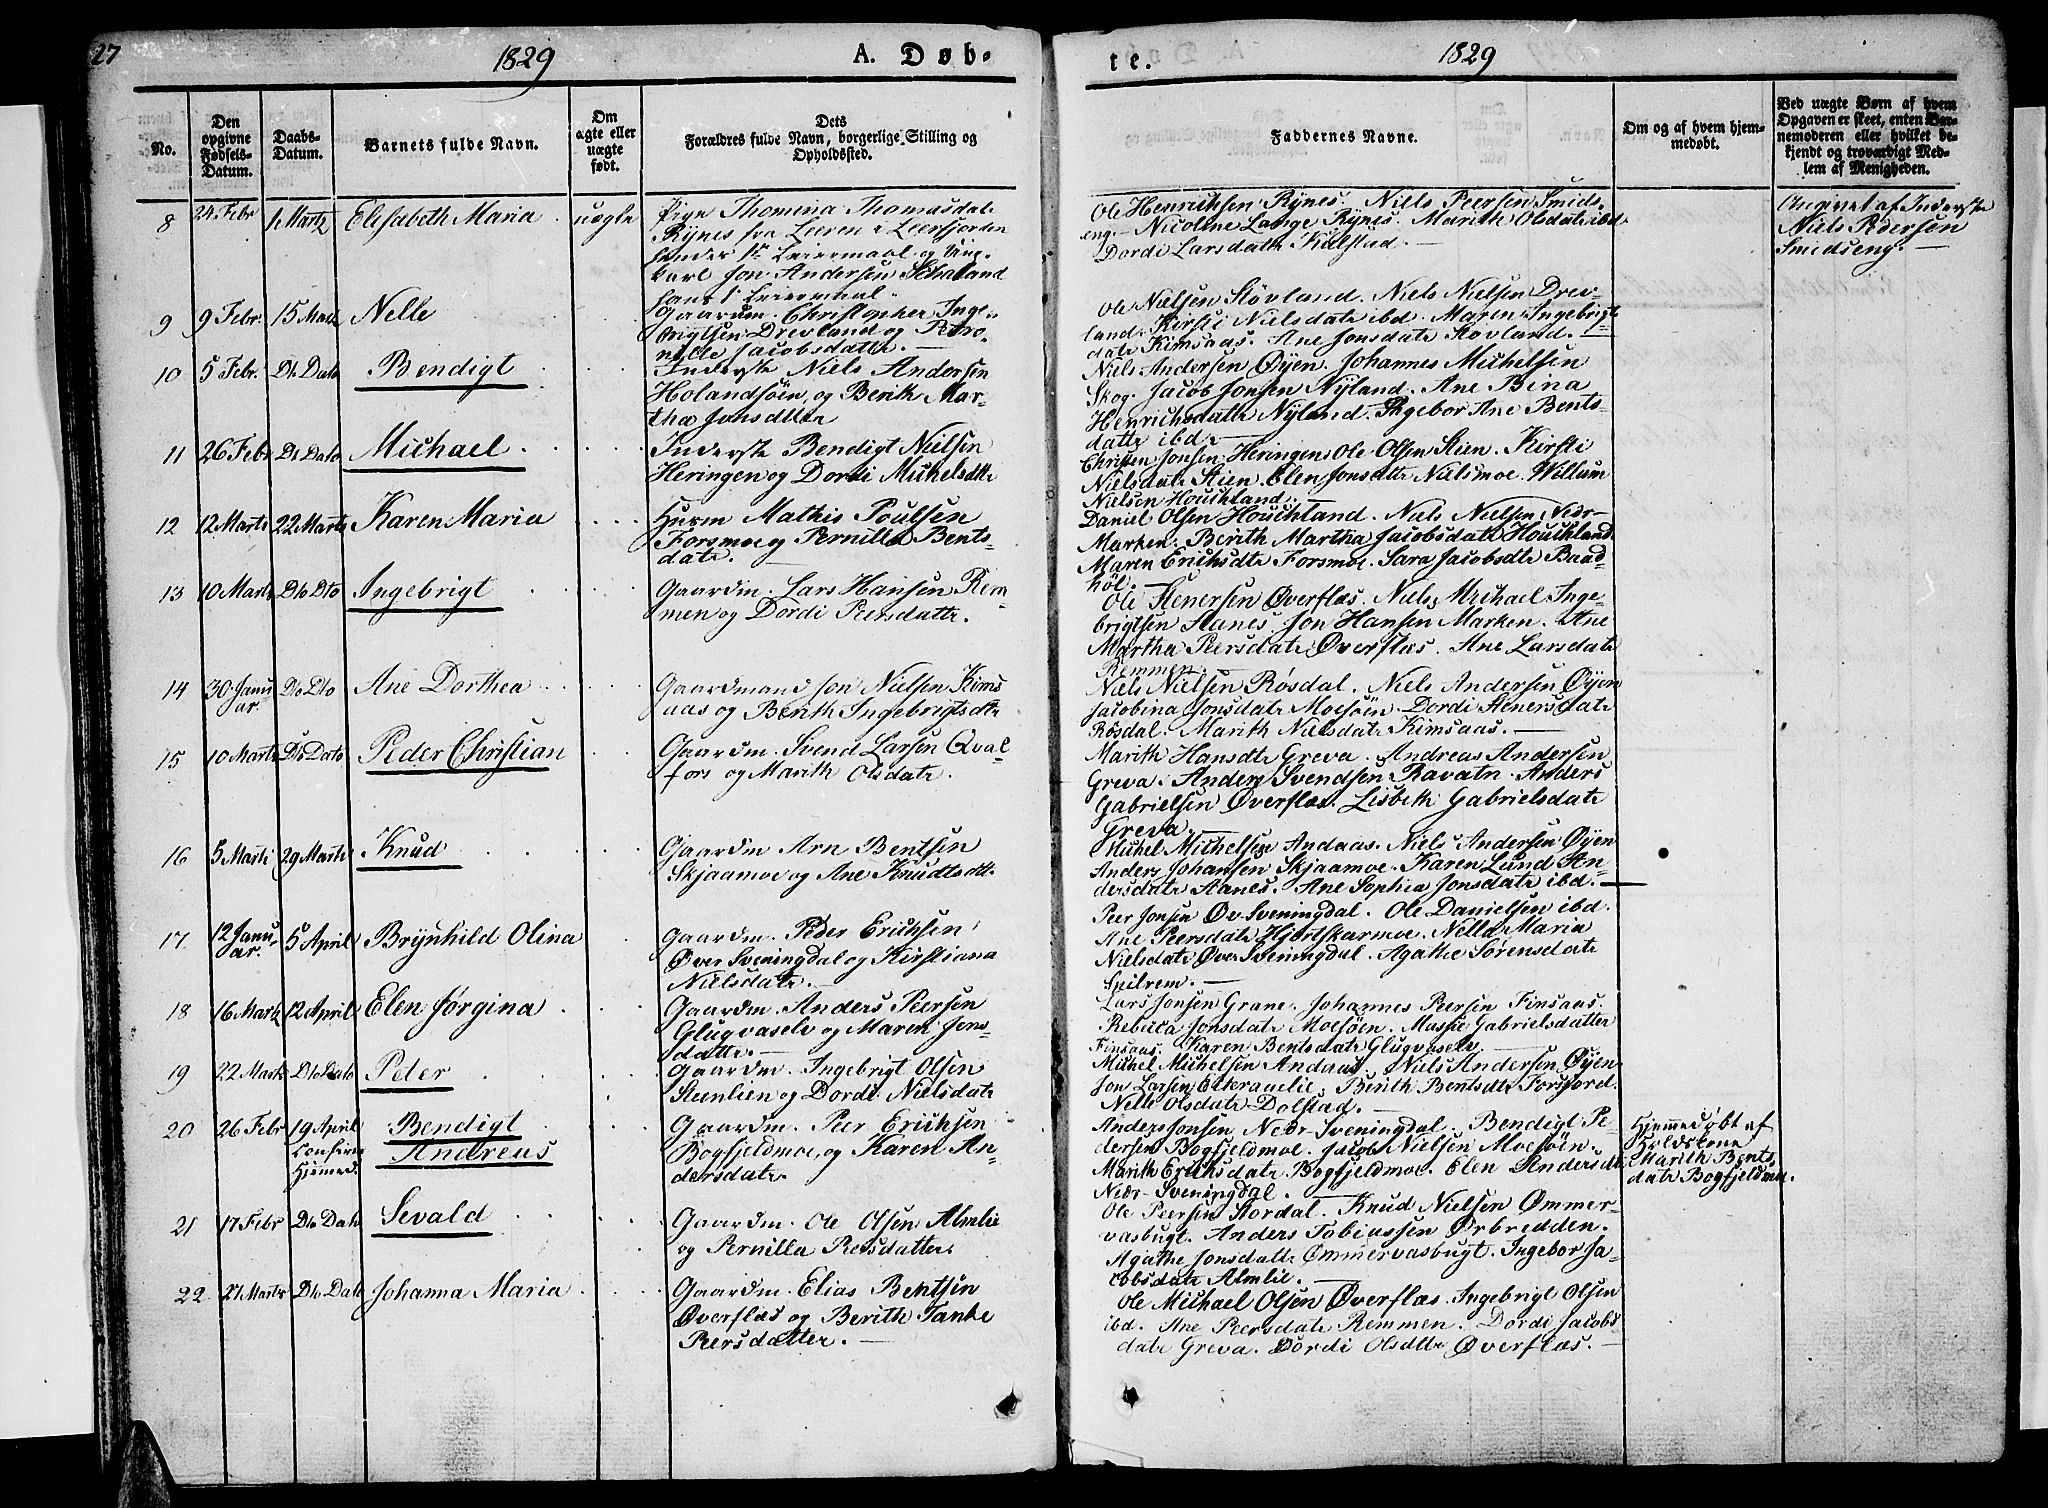 27
1829
A. Døb-
te.
1829
No.
Den opgivne Fødsels-Datum.
Daabs-Datum.
Barnets fulde Navn.
Om ægte eller uægte født.
Dets Forældres fulde Navn, borgerlige Stilling og Opholdssted.
Faddernes Navne.
Om og af hvem hjemmedøbt.
Ved uægte Børn af hvem Opgaven er skeet, enten Barnemoderen eller hvilket bekjendt og troværdigt Medlem af Menigheden.
8 24 Febr 1 Martz Elisabeth Maria uægte
Pign Thomina Thomasdatr
Rynes fra Leeren
hendes 1ste Leiermaal og Ung-
karl Jon Andersen
hans 1 Leiermaal
Ole Henrichsen Rynes. Niels Peersen Smids-
eng. Nicoline Lange Rynes. Marith Olsdatr ibd
Dordi Larsdattr Kulstad.
Angivet af Inderste
Niels Pedersen
Smedseng.
9 9 Febr. 15 Martz Nelle
Gaardm. Christopher Inge-
brigtsen Drevland og Petro-
nelle Jacobsdatter.
Ole Nielsen Støvland. Niels Nielsen Drev-
land. Kirsti Nielsdatr ibd. Maren Ingebrigts-
datr Kimsaas. Ane Jonsdatr Støvland.
10 5 Febr. Do Dato Bendigt
Inderste Niels Andersen
Holandsöen, og Berith Mar-
tha Jonsdttr
Niels Andersen Øyen. Johannes Michelsen
Skog. Jacob Jonsen Nyland. Ane Bina
Henrichsdattr Nyland. Ingebor Ane Bents-
dattr ibd.
11 26 Febr Do Dato Michael
Inderste Bendigt Nielsen
Heringen og Dordi Michelsdttr
Christen Jonsen Heringen. Ole Olsen Stien. Kirsti
Nielsdatr Stien. Elen Jonsdattr Nielsmoe. Willum
Nielsen Houchland.
12 12 Marts 22 Marts Karen Maria
Husm Mathis Poulsen
Forsmoe og Pernilla Bents-
datr.
Daniel Olsen Houchland. Niels Nielsen Nedr-
Marken. Berith Martha Jacobsdatr Houchland
Maren Erichsdtr Forsmoe. Sara Jacobsdtr Baad-
høl.
13 10 Marts Do Dto Ingebrigt
Gaardm. Lars Hansen Rem-
men og Dordi Peersdattr.
Ole Stenersen Øverflæs. Niels Michael Inge-
brigtsen Stanes. Jon Hansen Marken. Ane
Martha Peersdatr Øverflæs. Ane Larsdatr
Remmen.
14 30 Janu-ar. Do Dto Ane Dorthea
Gaardmand Jon Nielsen Kims-
aas og Berith Ingebrigtsdtr
Niels Nielsen Røsdal. Niels Andersen Øyen
Jacobina Jonsdatr Moesøen. Dordi Stenersdatr
Røsdal. Marith Nielsdatr Kimsaas.
15 10 Marts Do Dato Peder Christian
Gaardm. Svend Larsen Qval-
fors og Marith Olsdatr.
Marith Hansdtr Greva. Andreas Andersen
Greva. Anders Svendsen Ravatn. Anders
Gabrielsen Øverflæs. Lisbeth Gabrielsdatr
Greva.
16 5 Marti 29 Marts Knud
Gaardm Arn Bentsen
Skjaamoe og Ane Knudtsdtr.
Michel Michelsen Andaas. Niels Andersen Øyen
Anders Johansen Skjaamoe. Karen Lund An-
dersdatr Aanes. Ane Sophia Jonsdatr ibd.
17. 12 Janu-ar. 5 April Brynhild Olina
Gaardm. Peder Erichsen
Øver Sveningdal og Kirstiana
Nielsdatr.
Peer Jonsen Øv. Sveningdal. Ole Danielsen ibd.
Ane Peersdatr Hjortskarmoe. Nella Maria
Nielsdatr Øver Sveningdal. Agathe Sørensdatr
Spilrem.
18 16 Marts 12 April Elen Jørgina
Gaardm. Anders Peersen
Glugvaselv og Maren Jons-
dattr.
Lars Jonsen Grane. Johannes Peersen Finsaas.
Rebecca Jonsdatr Moesøen. Massie Gabrielsdatter
Finsaas. Karen Bentsdatr Glugvaselv.
19 22 Marts Do Dato Peder
Gaardm. Ingebrigt Olsen
Steenlien og Dordi Nielsdatr
Michel Michelsen Andaas. Niels Andersen Øyen
Jon Larsen. Birith Bentsdtr Forsjord.
Nelle Olsdatr Dolstad.
20 26 Febr 19 April Confirm Hjemmed. Bendigt Andreas
Gaardm. Peer Erichsen
Bogfjeldmoe, og Karen An-
dersdatr.
Anders Jonsen Nedr-Sveningdal. Bendigt Pe-
dersen Bogfjeldmoe. Jacob Nielsen Moesøen.
Marith Erichsdatr Bogfjeldmoe. Elen Andersdtr
Nedr-Sveningdal.
Hjemmedøbt af
Holdskone
Marith Bents-
datr Bogfjeldmoe.
21 17 Febr Do Dato Sevald
Gaardm. Ole Olsen Almlie
og Pernilla Peersdatter.
Ole Peersen Stordal. Knud Nielsen Ømmer-
vasbugt. Anders Tobiassen Ørbredden.
Agathe Jonsdattr Ømmervasbugt. Ingebor Ja-
cobsdatr Almlie.
22 27 Marts Do Dato Johanna Maria
Gaardm. Elias Bentsen
Øverflæs og Berith Tanke
Peersdatter.
Ole Michael Olsen Øverflæs. Ingebrigt Olsen
ibd. Ane Peersdatr Remmen. Dordi Jacobs-
datr Greva. Dordi Olsdttr Øverflæs.